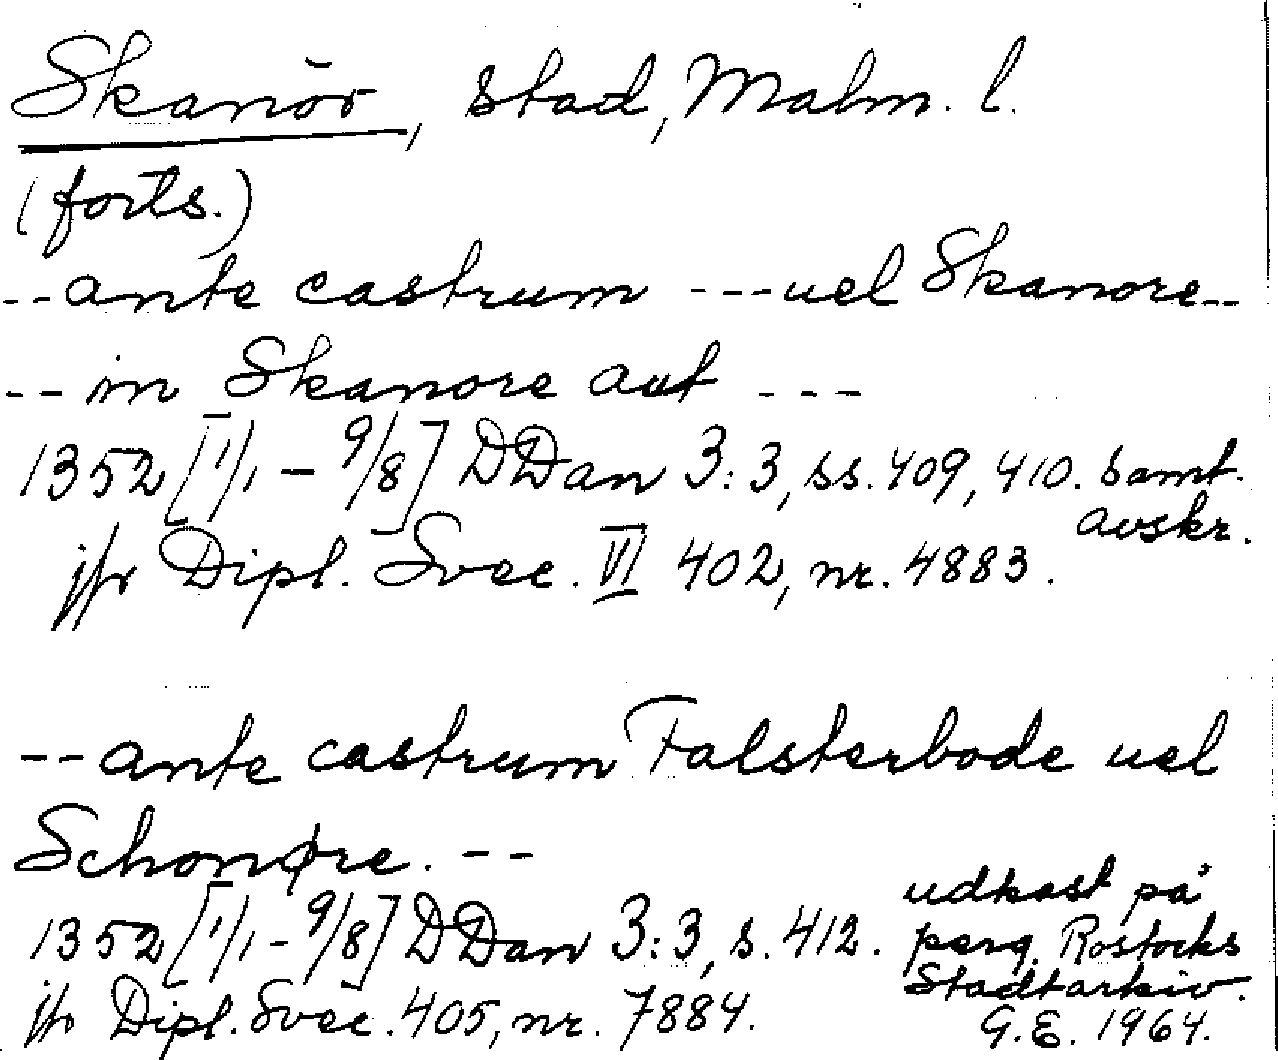 Skanör, stad, Malm. l.
(forts.)
-- ante castrum --- uel Skanore --
-- in Skanore aut ---
1352 [1/1 - 9/8] DDan 3:3, ss. 409, 410. samt.
avskr.
jfr Dipl. Svec. VI 402, nr. 4883.
-- ante castrum Falsterbode uel
Schonøre. --
1352 [1/1 - 9/8] DDan 3:3, s. 412.
udkast på
perg. Rostocks
Stadtarkiv.
jfr Dipl. Svec. 405, nr. 7884.
G.E. 1964.